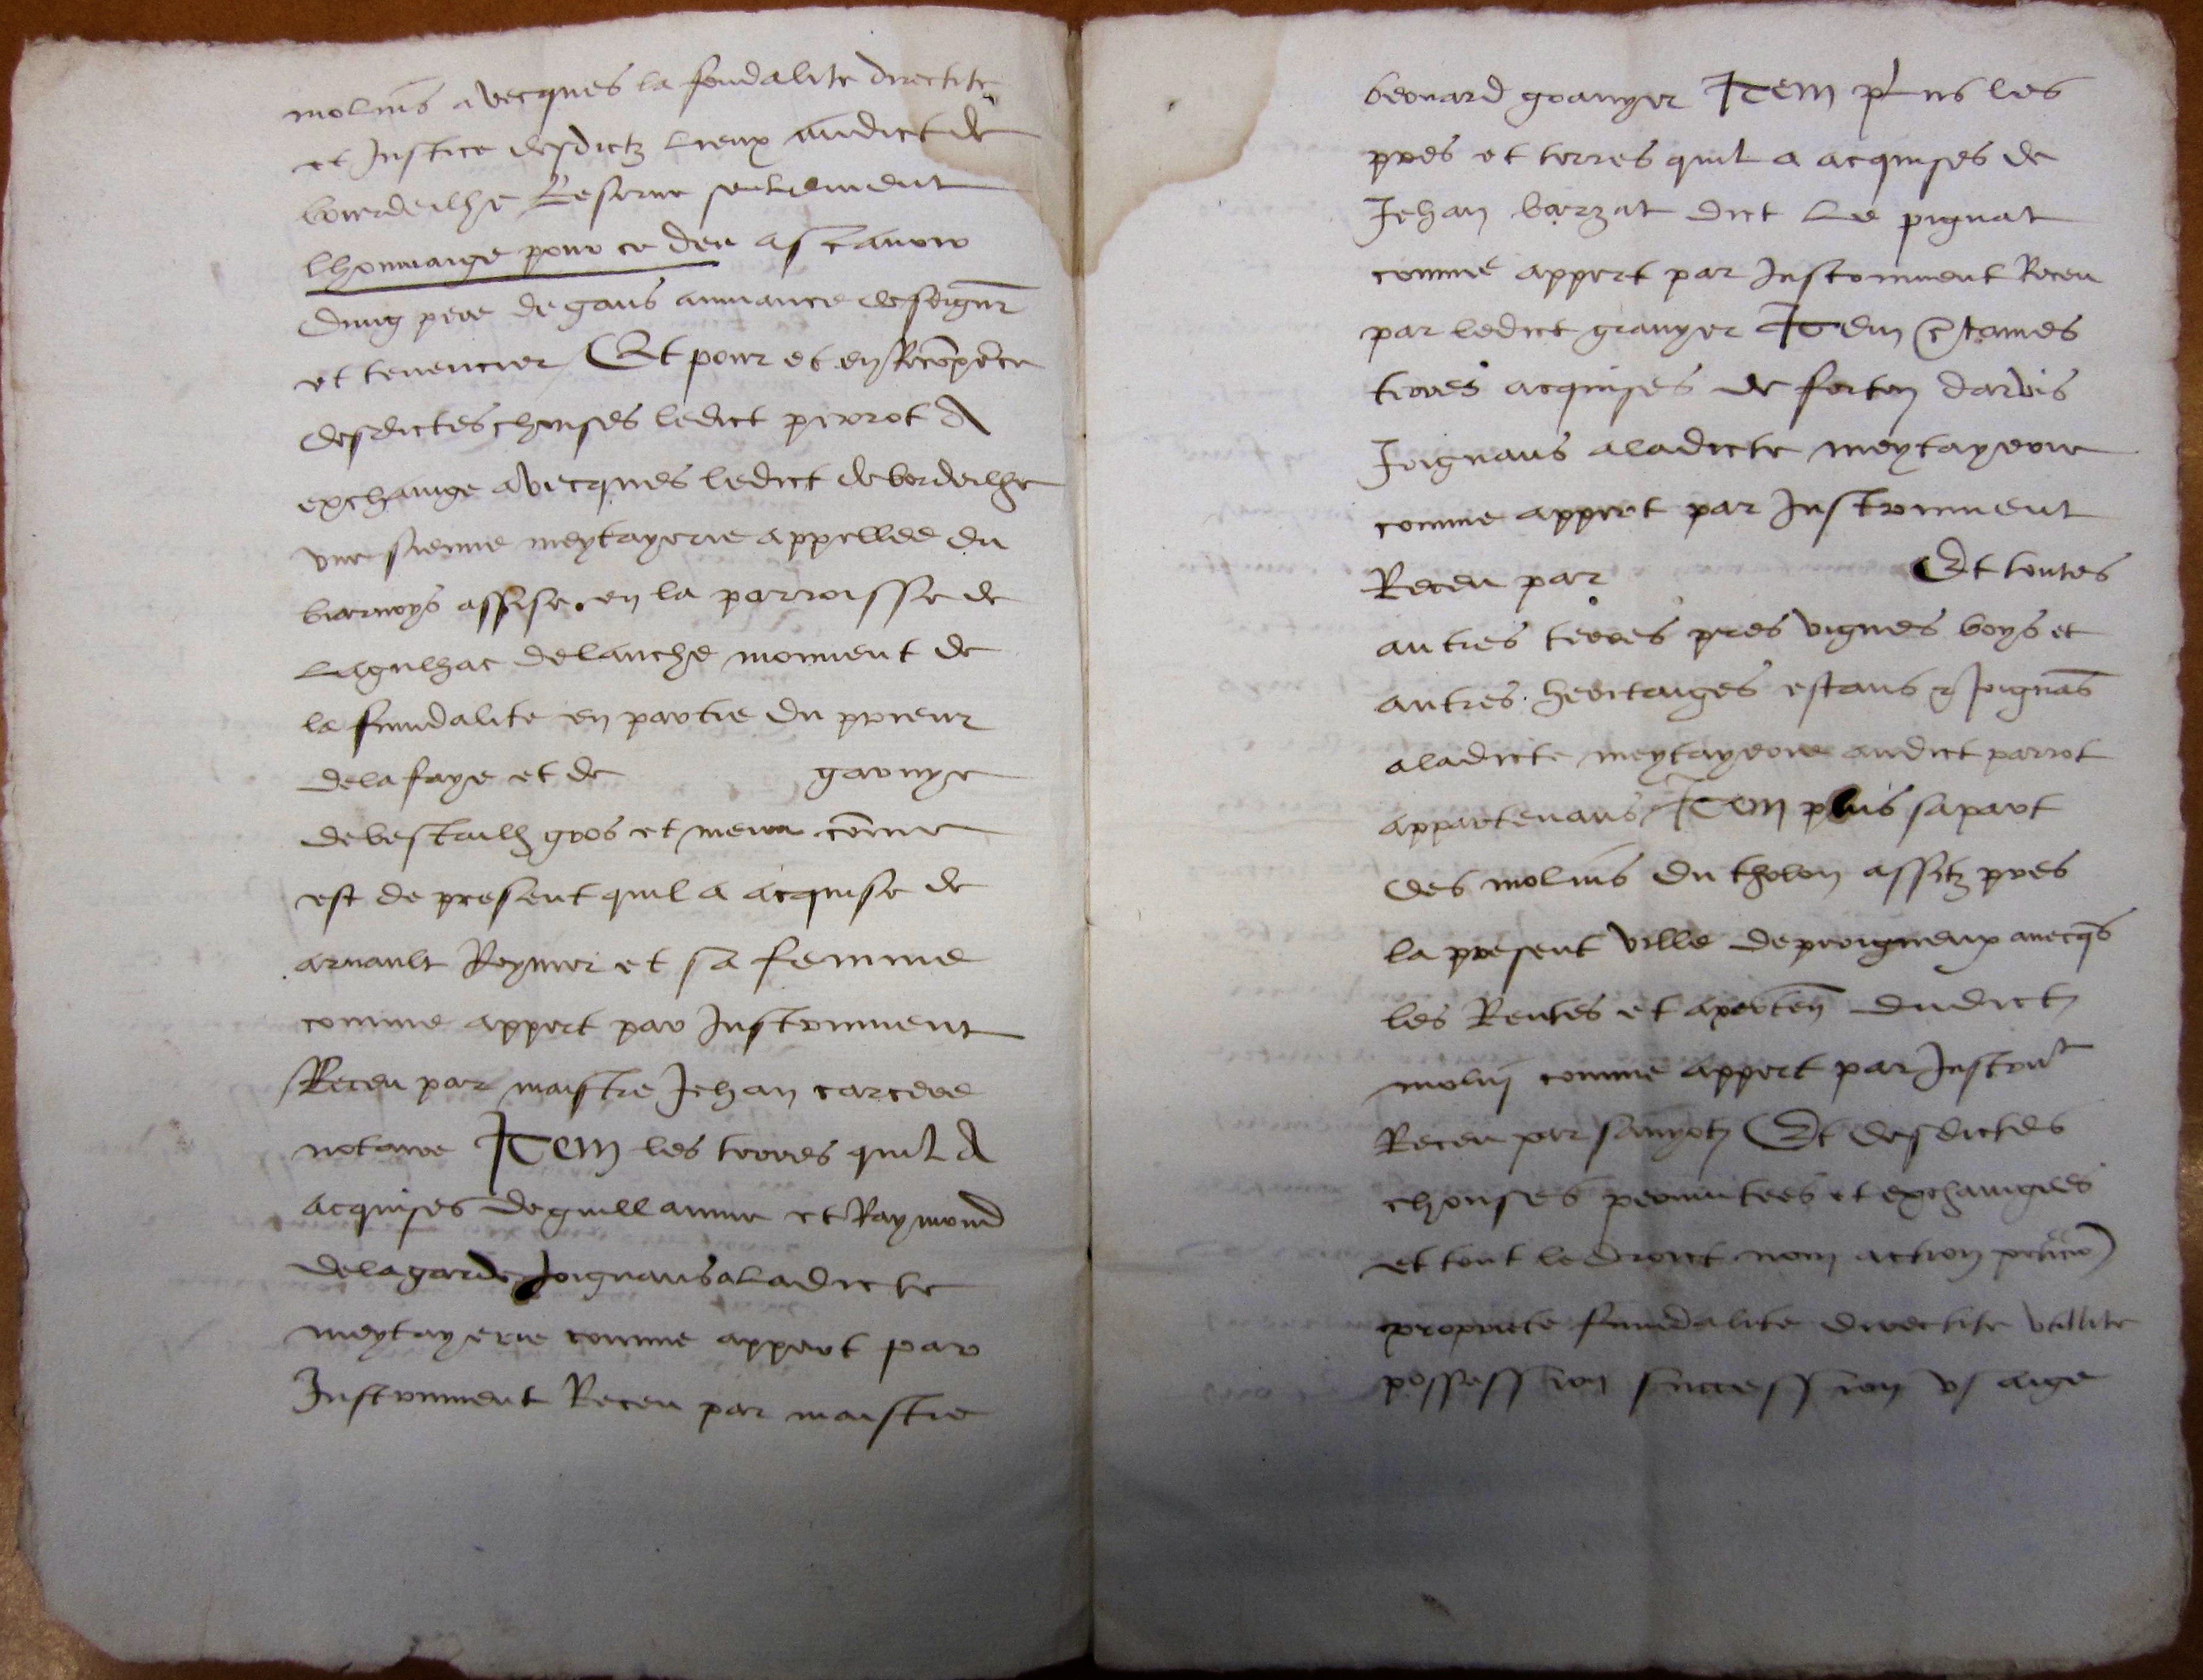 molins avecques la fondalite directite
et Justice desdictz lieux audict de
bourdeilhe Reserve seulement
lhommaige pour ce deu assavoir
dung pere de gans amuance de seignr
et tenencier Et pour et en Recompence
desdictes chouses ledict perrot A
exchange avecques ledict de bordeilhe
une sienne meytayerie appellee du
biarnoys assise en la parroisse de
Lagulhac delauche mouvent de
la fundalite en partie du prieur
de la faye et de garnye
de bestailh gros et menu comme
est de present quil a acquise de
arnault Reymer et sa femme
comme appert par Instrument
Receu par maistre Jehan
notaire Item les terres quil A
acquises de guillaume et Raymond
delagarde Joignans a Ladicte
meytayerie comme appert par
Instrument Receu par maistre
beonard granyer Item plus les
pres et terres quil a acquises de
Jehan barzat dict Le pignat
comme appert par Instrument Receu
par ledict granyer Item certaines
terres acquises de forton
Joignans a ladicte meytayerie
comme appert par Instrument
Receu par Et toutes
autres terres pres vignes boys et
autres heritaiges estans et Joignans
a ladicte meytayerie audict parrot
appartenans Item plus sa part
des molins du tholon assitz pres
la present ville de perigneux avecqs
les Rentes et aperten dudict
molin comme appert par Instrut
Receu par Et desdictes
chouses permutees et exchangees
et tout le droict nom action peticion
propriete fundalite directite utillite
possession succession usaige